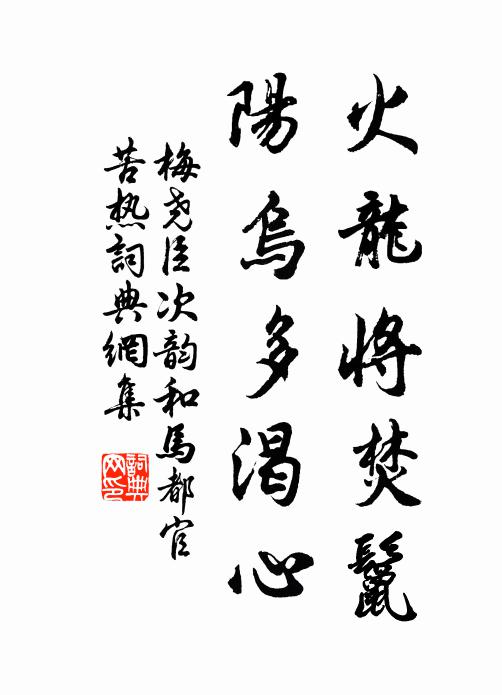 火龍將焚鬣
陽烏多渴心
梅尧臣次韵和馬都官
苦热詞典網集
詞典网印